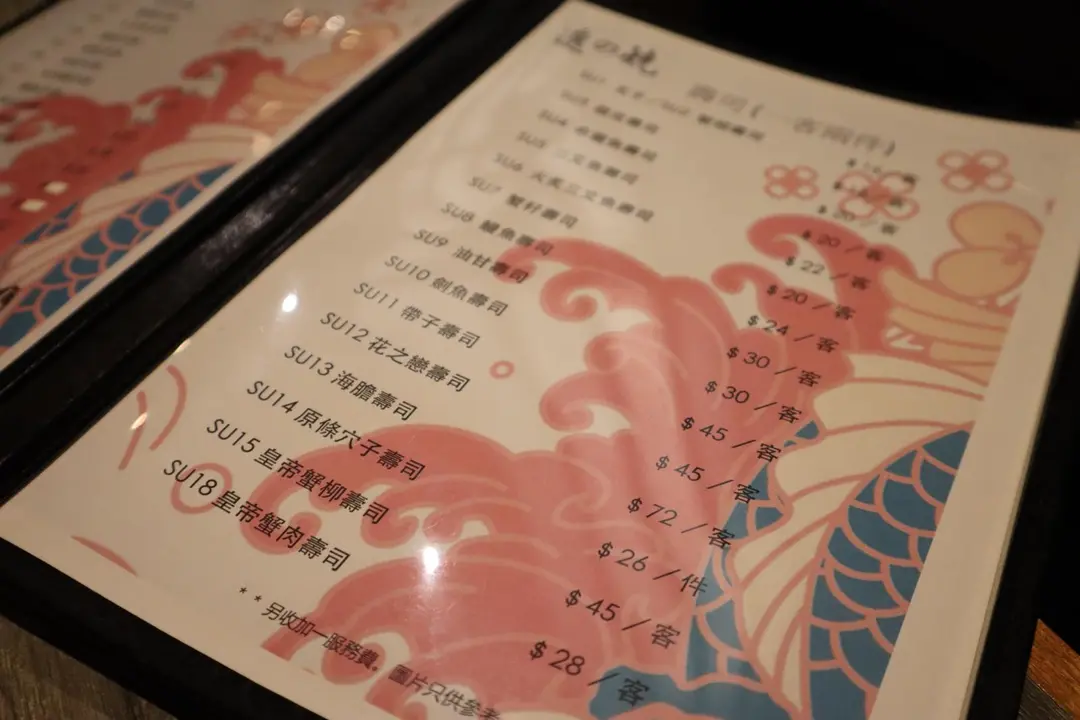 壽司(一客兩件)
SU4 壽司 $20／客
SU5 三文魚壽司 $20／客
SU6 火炙三文魚壽司 $22／客
SU7 蟹籽壽司 $20／客
SU8 鯛魚壽司 $24／客
SU9 油甘壽司 $30／客
SU10 劍魚壽司 $30／客
SU11 帶子壽司 $45／客
SU12 花之戀壽司 $45／客
SU13 海膽壽司 $72／客
SU14 原條穴子壽司 $26／件
SU15 皇帝蟹柳壽司 $45／客
SU18 皇帝蟹肉壽司 $28／客
**另收加一服務費。圖片只供參考